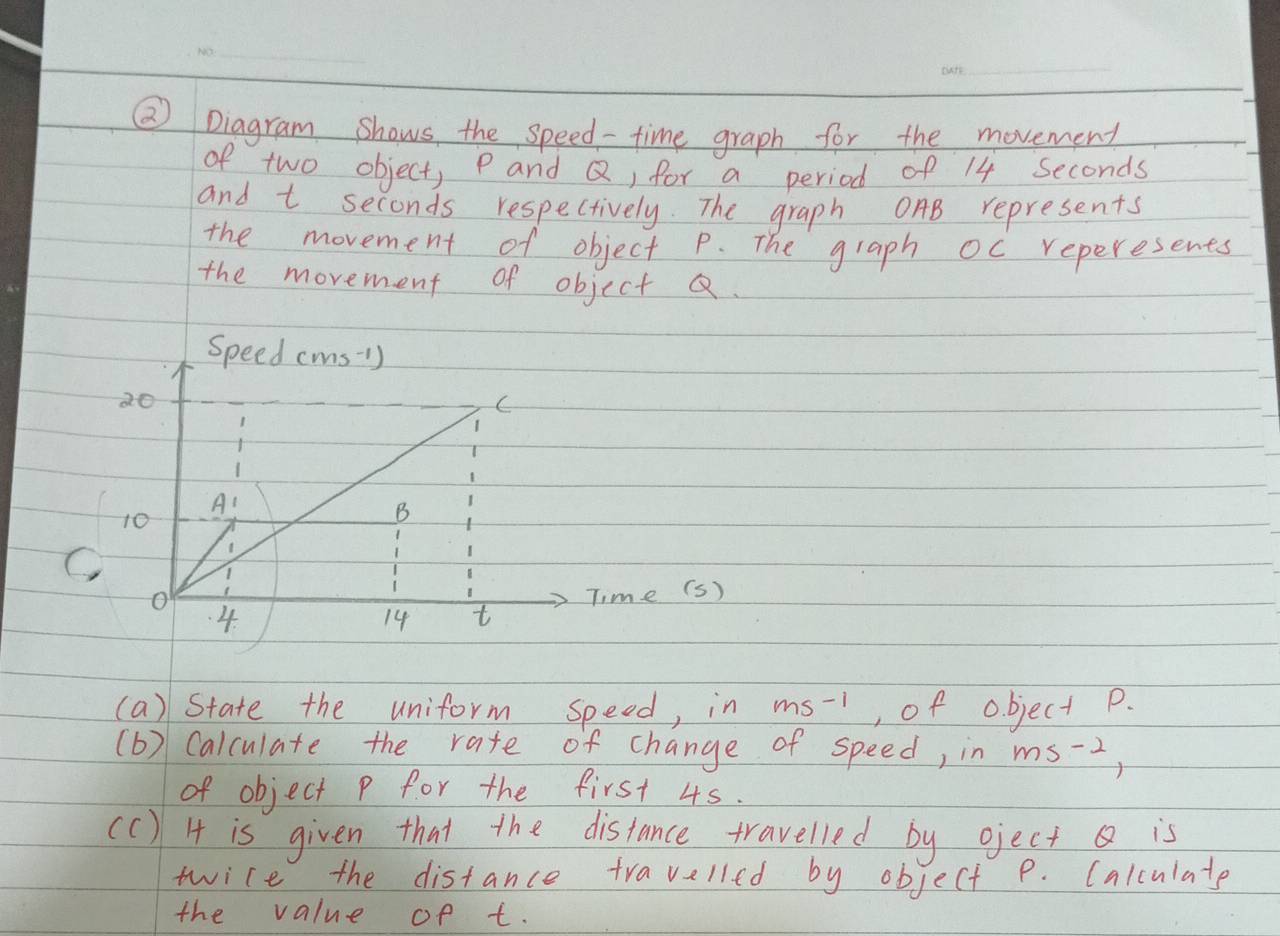 NO.
DATE
② Diagram Shows the speed-time graph for the movement
of two object, P and Q, for a period of 14 Seconds
and t seconds respectively. The graph OAB represents
the movement of object P. The graph OC reperesenes
the movement of object Q.
Speed cms-1)
20
C
A
10
B
O
4
14
t
Time (s)
(a) State the uniform speed, in ms-1, of object P.
(b) Calculate the rate of change of speed, in ms-2,
of object P for the first 4s.
(c) It is given that the distance travelled by oject Q is
twice the distance travelled by object P. Calculate
the value of t.